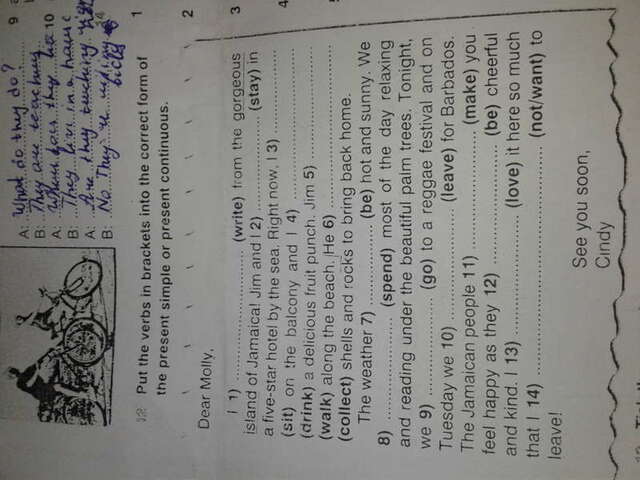 A: What do they do? 9
B: They are teaching
A: Where does they live 10
B: They live in a house
A: Are they teaching
B: No They're riding
bicly
12 Put the verbs in brackets into the correct form of 1
the present simple or present continuous.
2
Dear Molly,
I 1) .................... (write) from the gorgeous 3
island of Jamaica! Jim and I 2) .................... (stay) in
a five-star hotel by the sea. Right now, I 3) ....................
(sit) on the balcony and I 4) .................... 4
(drink) a delicious fruit punch. Jim 5) ....................
(walk) along the beach. He 6) ....................
(collect) shells and rocks to bring back home.
The weather 7) .................... (be) hot and sunny. We
8) .................... (spend) most of the day relaxing
and reading under the beautiful palm trees. Tonight,
we 9) .................... (go) to a reggae festival and on
Tuesday we 10) .................... (leave) for Barbados.
The Jamaican people 11) .................... (make) you
feel happy as they 12) .................... (be) cheerful
and kind. I 13) .................... (love) it here so much
that I 14) .................... (not/want) to
leave!
See you soon,
Cindy